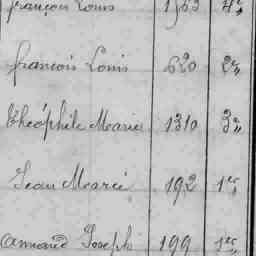 françois Louis 1563 4"
françois Louis 620 2"
Théophile Marie 1310 3"
Jean Marie 192 1er
Armand Joseph 199 1er